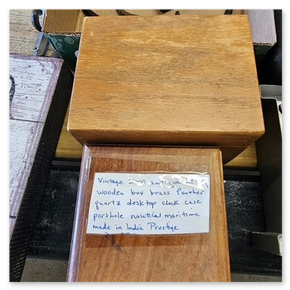 Vintage
wooden box brass
quartz desktop clock case
porthole nautical maritime
made in India Prestige